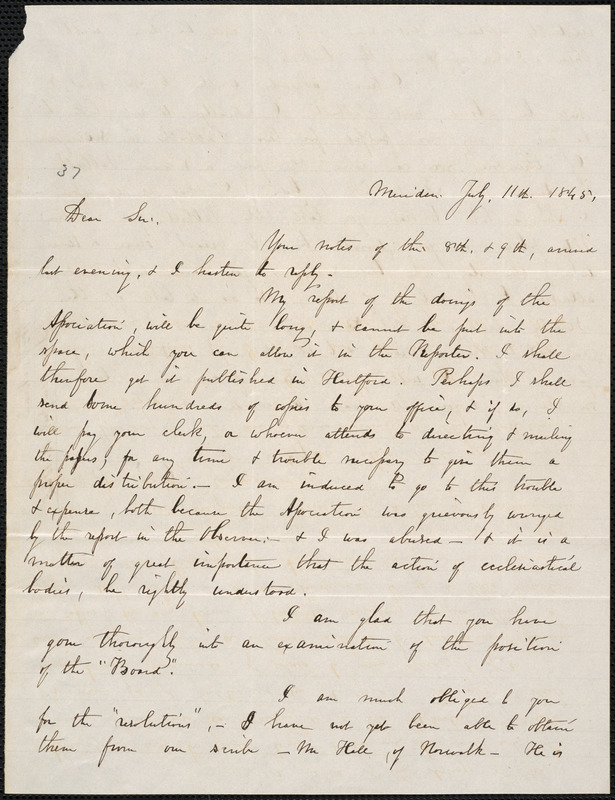 37
Meriden. July, 11th. 1845,
Dear Sir.
Your notes of the 8th. & 9th, arrived
last evening, & I hasten to reply.
My report of the doings of the
Association, will be quite long, & cannot be put into the
space, which you can allow it in the Reporter. I shall
therefore get it published in Hartford. Perhaps I shall
send some hundreds of copies to your office, & if so, I
will pay your clerk, or whoever attends to directing & mailing
the papers, for any time & trouble necessary to give them a
proper distribution.— I am induced to go to this trouble
& expense, both because the Association was grievously wronged
by the report in the Observer.— & I was abused — & it is a
matter of great importance that the action of ecclesiastical
bodies, be rightly understood.
I am glad that you have
gone thoroughly into an examination of the position
of the "Board".
I am much obliged to you
for the "resolutions", — I have not yet been able to obtain
them from our scribe — Mr Hall, of Norwalk — He is